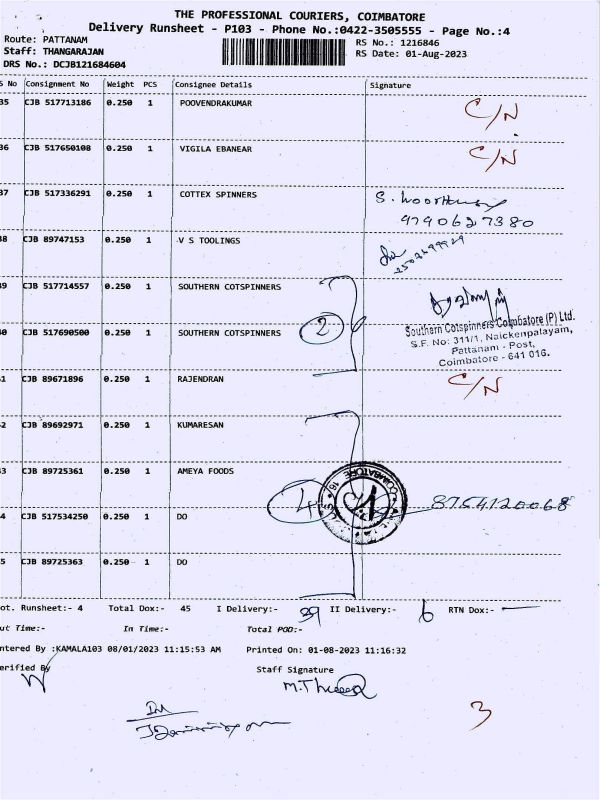 THE PROFESSIONAL COURIERS, COIMBATORE
Delivery Runsheet - P103 - Phone No.:0422-3505555 - Page No.:4
Route: PATTANAM
RS No.: 1216846
Staff: THANGARAJAN
RS Date: 01-Aug-2023
DRS No.: DCJB121684604
S No Consignment No Weight PCS Consignee Details Signature
35 CJB 517713186 0.250 1 POOVENDRAKUMAR C/N
36 CJB 517650108 0.250 1 VIGILA EBANEAR C/N
37 CJB 517336291 0.250 1 COTTEX SPINNERS S.
9790627380
38 CJB 89747153 0.250 1 V S TOOLINGS
39 CJB 517714557 0.250 1 SOUTHERN COTSPINNERS
2
Southern Cotspinners Coimbatore (P) Ltd.
S.F. No: 311/1, Naickenpalayam,
Pattanam - Post,
Coimbatore - 641 016.
0 CJB 517690500 0.250 1 SOUTHERN COTSPINNERS
1 CJB 89671896 0.250 1 RAJENDRAN C/N
2 CJB 89692971 0.250 1 KUMARESAN
3 CJB 89725361 0.250 1 AMEYA FOODS
4 COIMBATORE 8754120068
4 CJB 517534250 0.250 1 DO
5 CJB 89725363 0.250 1 DO
ot. Runsheet:- 4 Total Dox:- 45 I Delivery:- 39 II Delivery:- 6 RTN Dox:- —
ut Time:- In Time:- Total POD:-
ntered By :KAMALA103 08/01/2023 11:15:53 AM Printed On: 01-08-2023 11:16:32
erified By Staff Signature
3